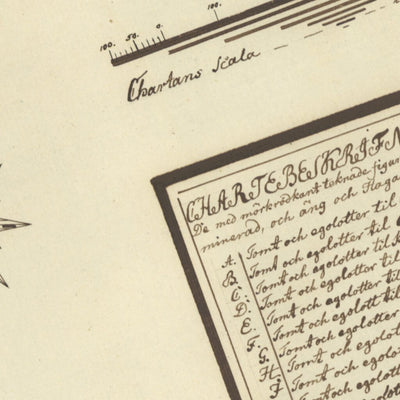 100. 50. 0. 100.
Chartans scala
CHARTEBESKRIFN
De med mörkrödkant teknade figur
minerad, och äng och Haga
A. Tomt och egolotter til
B. Tomt och egolotter til
C. Tomt och egolotter til
D. Tomt och egolotter til
E. Tomt och egolotter til
F. Tomt och egolott til
G. Tomt och egolotter
H. Tomt och egolott
I. Tomt och egolott
Tomt och egolotter